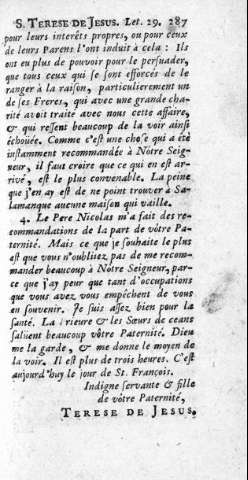 S. TERESE DE JESUS. Let. 29. 287
pour leurs interêts propres, ou pour ceux
de leurs Parens l'ont induit à cela : Ils
ont eu plus de pouvoir pour le persuader,
que tous ceux qui se sont efforcés de le
ranger à la raison, particulierement un
de ses Freres, qui avec une grande cha-
rité avoit traité avec nous cette affaire,
& qui ressent beaucoup de la voir ainsi
échouée. Comme c'est une chose qui a été
instamment recommandée à Nôtre Seig-
neur, il faut croire que ce qui en est ar-
rivé, est le plus convenable. La peine
que j'en ay est de ne point trouver à Sa-
lamanque aucune maison qui vaille.
4. Le Pere Nicolas m'a fait des re-
commandations de la part de vôtre Pa-
ternité. Mais ce que je souhaite le plus
est que vous n'oubliez pas de me recom-
mander beaucoup à Nôtre Seigneur, par-
ce que j'ay peur que tant d'occupations
que vous avez vous empêchent de vous
en souvenir. Je suis assez bien pour la
santé. La Prieure & les Sœurs de ceans
salüent beaucoup vôtre Paternité. Dieu
me la garde, & me donne le moyen de
la voir. Il est plus de trois heures. C'est
aujourd'huy le jour de St. François.
Indigne servante & fille
de vôtre Paternité,
TERESE DE JESUS.